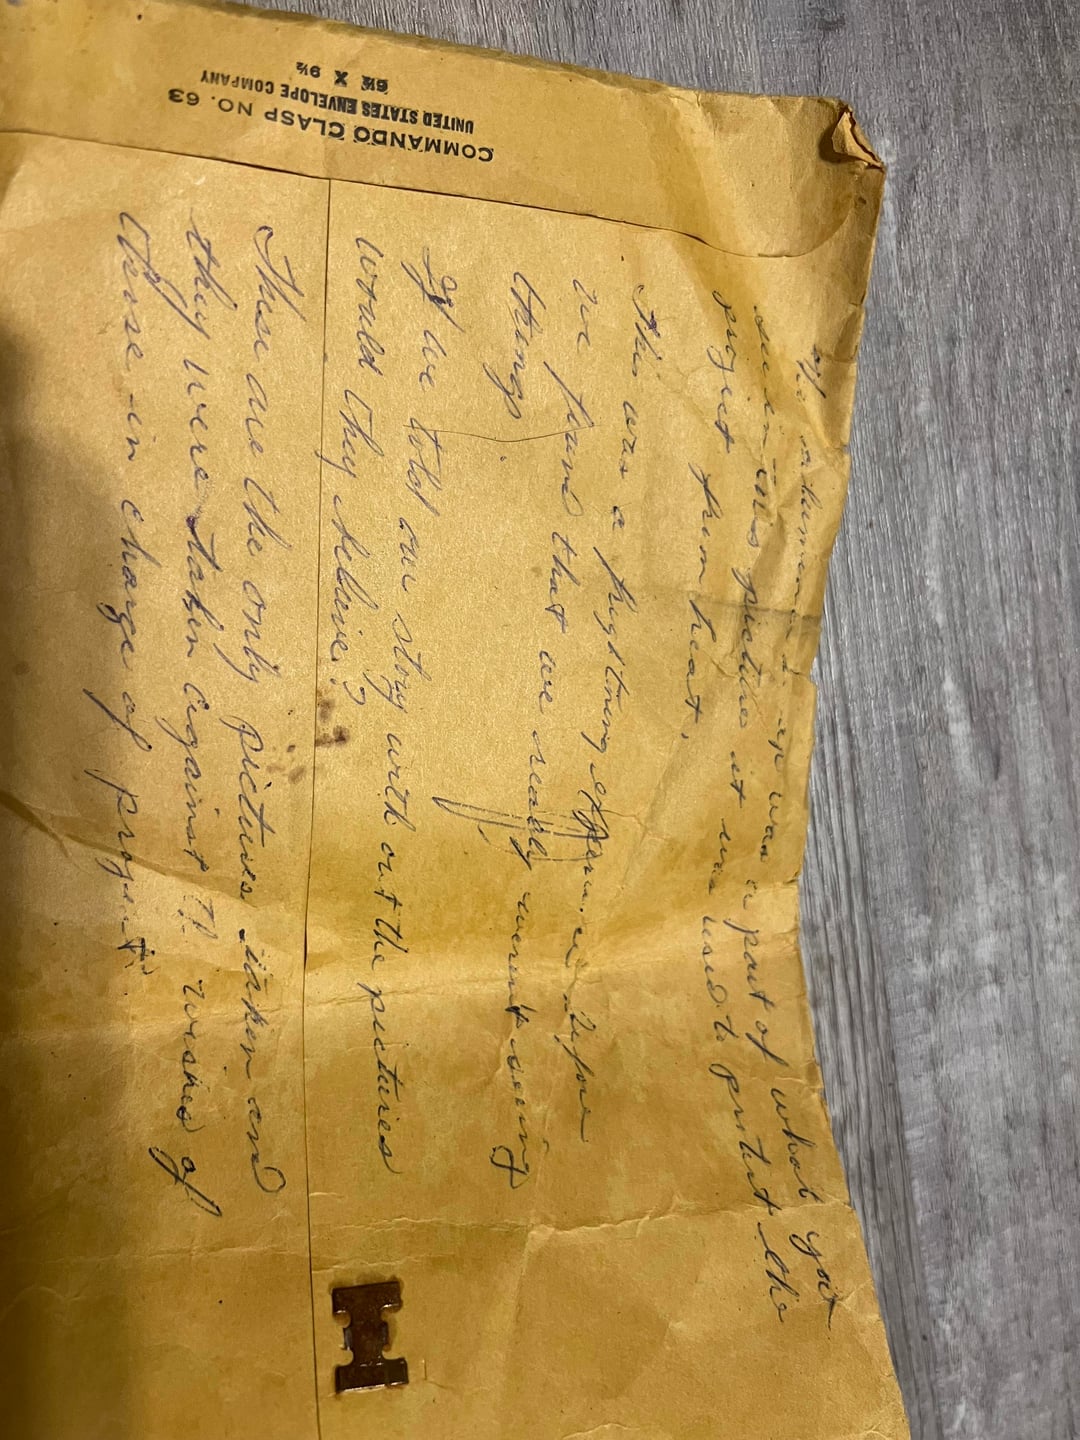 COMMANDO CLASP NO. 63
UNITED STATES ENVELOPE COMPANY
6½ X 9½
human up was a part of what you
see in this picture it was used to protect the
project from heat.
This was a frigtning before
we found that we really weren't seeing
things.
If we told our story with out the pictures
would they believe?
These are the only pictures taken and
they were taken against wishes of
those in charge of project.